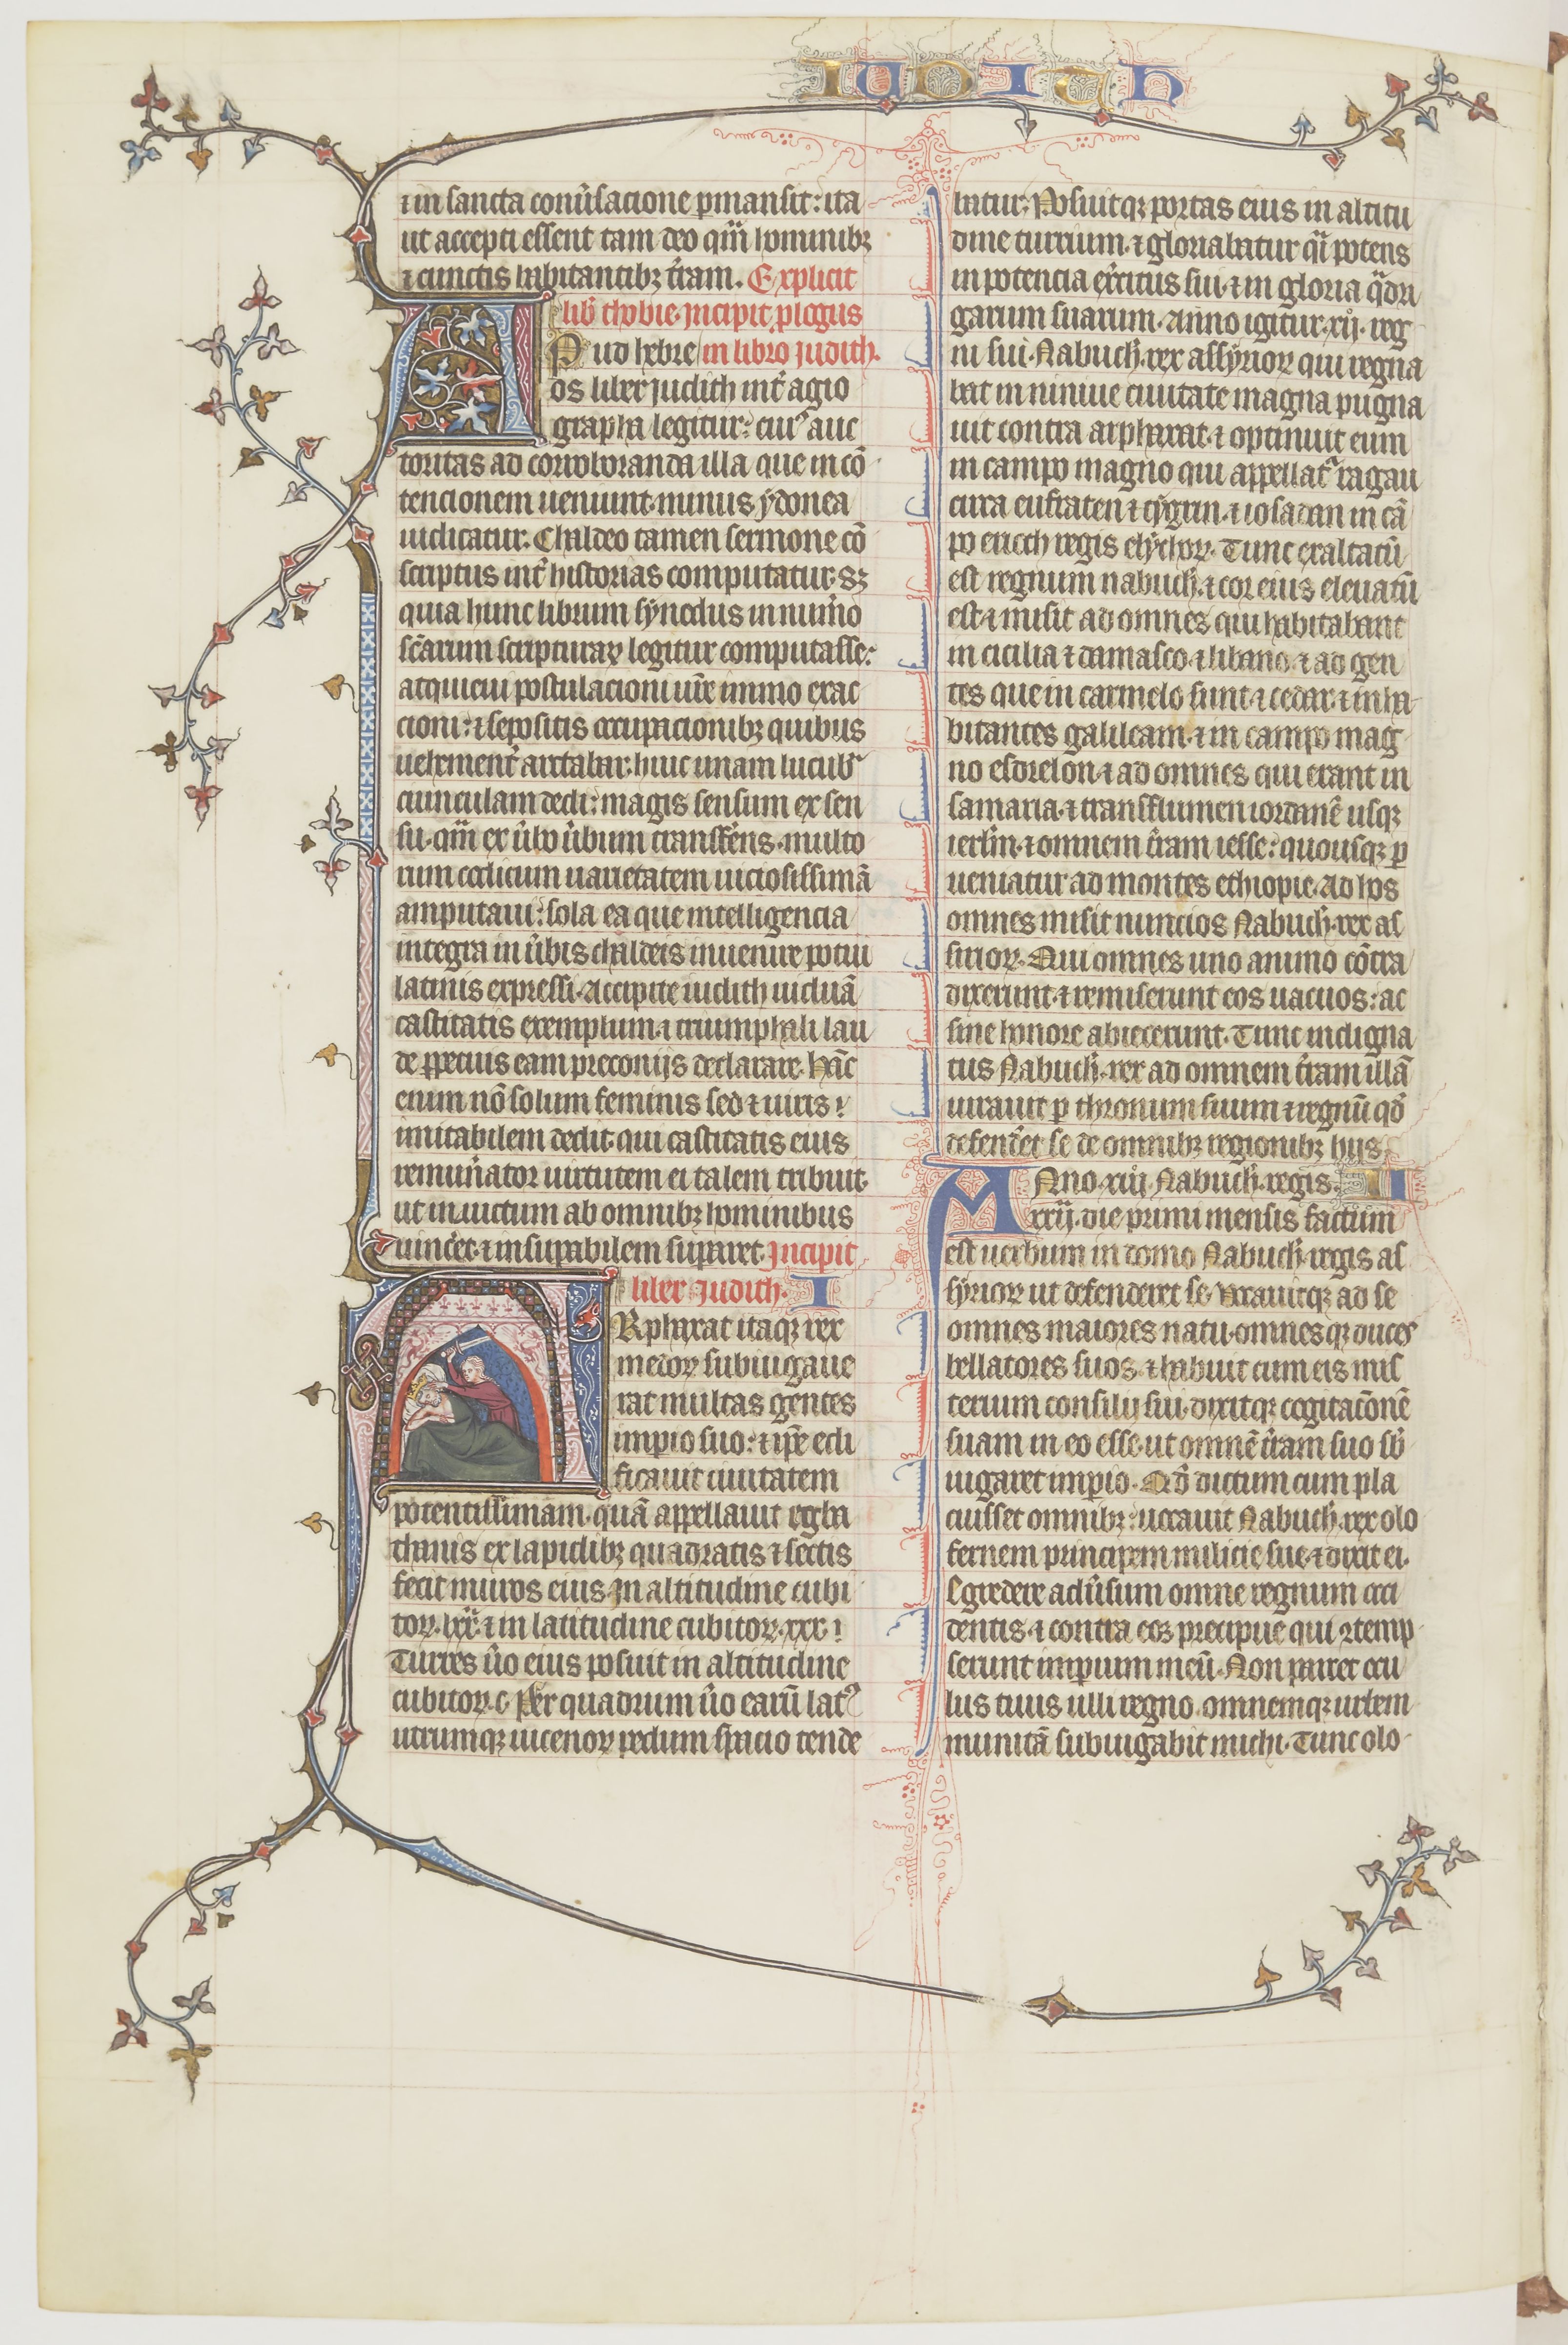 IUDITH
⁊ in sancta conũsacione ꝑmansit: ita
ut accepti essent tam deo qm̃ hominibꝫ
⁊ cunctis habitantibꝫ t̃ram. Explicit
lib̃ thobie. Incipit ꝓlogus
APud hebre in libro Judith.
os liber Judith int̃ agio
grapha legitur: cuiꝰ auc
toritas ad corroboranda illa que in cõ
tencionem ueniunt. minus ydonea
iudicatur. Chaldeo tamen sermone cõ
scriptus int̃ historias computatur. Sꝫ
quia hunc librum synodus in num̃o
sc̃arum scripturaꝝ legitur computasse:
atquieui postulacioni ur̃e immo exac
cioni: ⁊ sepositis occupacionibꝫ quibus
uehement̃ artabar. huic unam lucub̃
ciunculam dedi: magis sensum ex sen
su. qm̃ ex ũbo ũbum transfẽns. multo
rum codicium uarietatem uiciosissimã
amputaui: sola ea que intelligencia
integra in ũbis chaldeis inuenire potui
latinis expressi. Accipite iudith uiduã
castitatis exemplum. ⁊ triumphali lau
de ꝑpetuis eam preconijs declarare. Hãc
enim nõ solum feminis sed ⁊ uiris!
imitabilem dedit. qui castitatis eius
remuñator uirtutem ei talem tribuit.
ut inuictum ab omnibꝫ hominibus
uinc̃et. ⁊ insuꝑabilem suꝑaret. Incipit
liber Judith. I
ARphaxat itaqꝫ rex
medoꝝ subiugaue
rat multas gentes
imꝑio suo: ⁊ ip̃e edi
ficauit ciuitatem
potentissimam. quã appellauit egba
thanis ex lapidibꝫ quadratis ⁊ sectis
fecit muros eius. In altitudine cubi
toꝝ. lxx. ⁊ in latitudine cubitoꝝ. xxx!
Turres ũo eius posuit in altitudine
cubitoꝝ. c. Per quadrum ũo earũ latꝰ
utrumqꝫ uicenoꝝ pedum spacio tende
batur. Posuitqꝫ portas eius in altitu
dine turrium. ⁊ gloriabatur q̃i potens
in potencia ex̃citus sui. ⁊ in gloria q̃dri
garum suarum. Anno igitur. xij. reg
ni sui. Nabuch̃. rex assyrioꝝ qui regna
bat in niniue ciuitate magna pugna
uit contra arphaxat. ⁊ optinuit eum
in campo magno qui appellat̃ ragau
circa eufraten ⁊ tygrin. ⁊ iosadan in cã
po erioch regis elychoꝝ. Tunc exaltatũ
est regnum nabuch̃. ⁊ cor eius eleuatũ
est. ⁊ misit ad omnes qui habitabant
in cicilia ⁊ damasco. ⁊ libano. ⁊ ad gen
tes que in carmelo sunt ⁊ cedar. ⁊ inha
bitantes galileam. ⁊ in campo mag
no esdrelon. ⁊ ad omnes qui erant in
samaria. ⁊ trans flumen iordanẽ usqꝫ
ierl̃m. ⁊ omnem t̃ram iesse: quousqꝫ ꝑ
ueniatur ad montes ethiopie. Ad hos
omnes misit nuncios Nabuch̃. rex as
sirioꝝ. Qui omnes uno animo cõtra
dixerunt. ⁊ remiserunt eos uacuos: ac
sine honore abiecerunt. Tunc indigna
tus Nabuch̃. rex ad omnem t̃ram illã
iurauit ꝑ thronum suum ⁊ regnũ qd̃
defend̃et se de omnibꝫ regionibꝫ hijs.
ANno. xiij. Nabuch̃. regis. II
xxij. die primi mensis factum
est uerbum in domo Nabuch̃. regis as
syrioꝝ ut defenderet se. uocauitqꝫ ad se
omnes maiores natu. omnesqꝫ duces
bellatores suos. ⁊ habuit cum eis mis
terium consilij sui. dixitqꝫ cogitac̃onẽ
suam in eo esse. ut omnẽ t̃ram suo sb̃
iugaret imꝑio. Qd̃ dictum cum pla
cuisset omnibꝫ: uocauit Nabuch̃. rex olo
fernem principem milicie sue. ⁊ dixit ei.
Egredere adũsum omne regnum occi
dentis. ⁊ contra eos precipue qui ꝯtemp
serunt imꝑium meũ. Non parcet ocu
lus tuus ulli regno. omnemqꝫ urbem
munitã subiugabit michi. Tunc olo